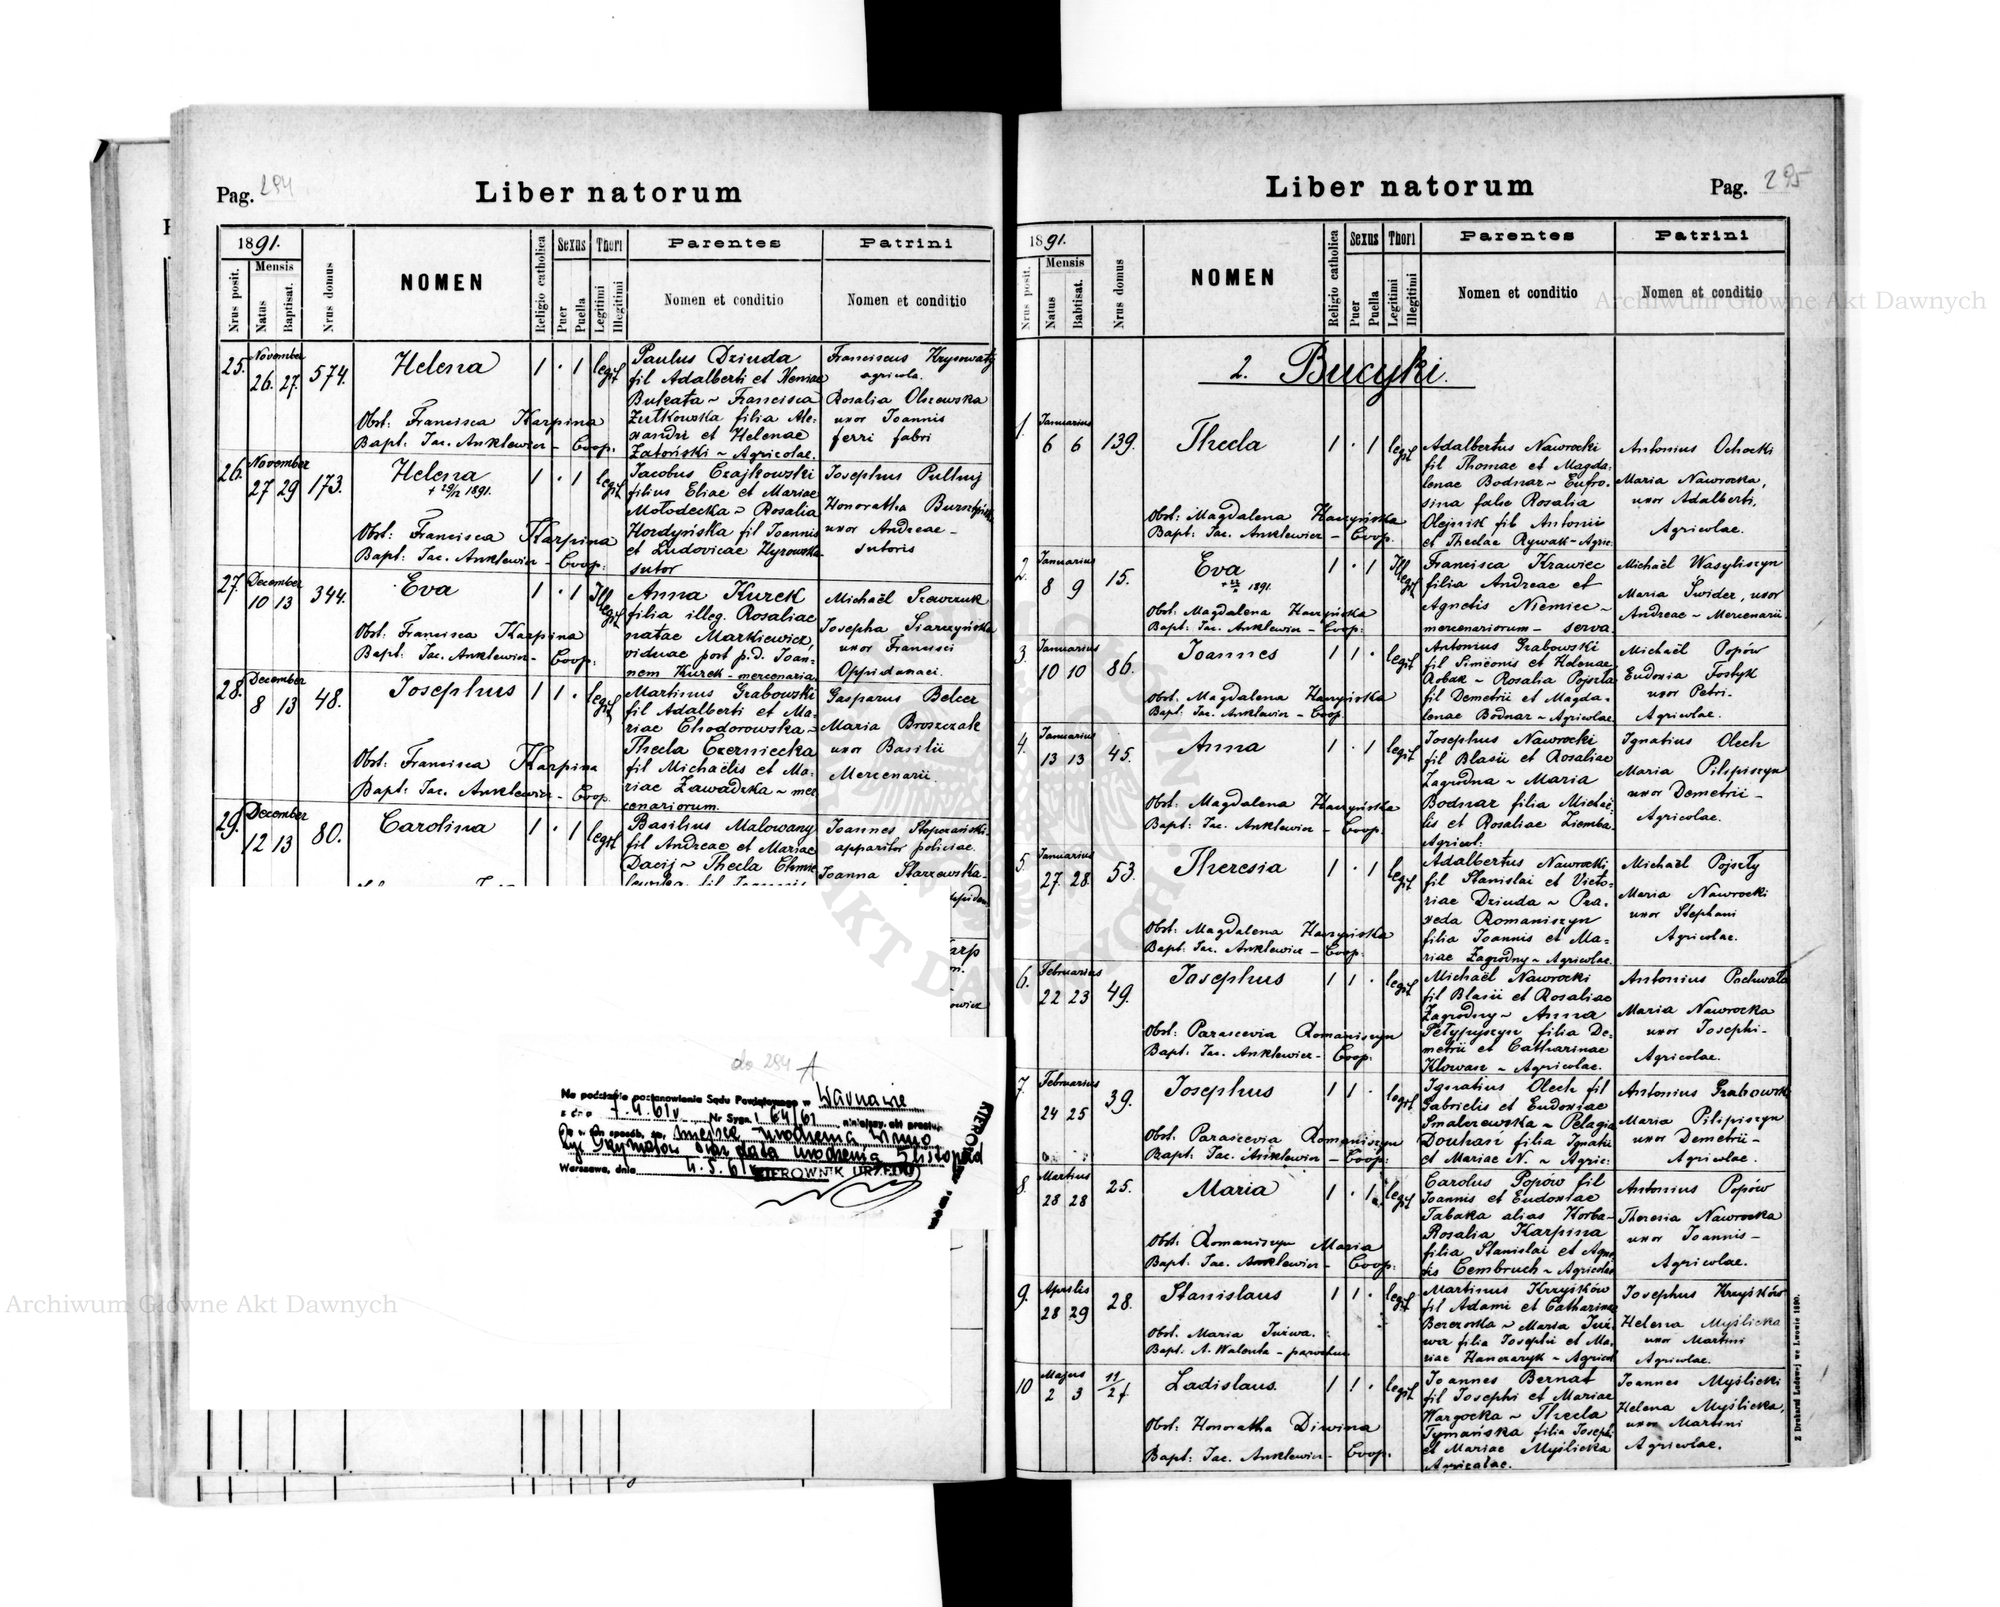 Pag. 294
Liber natorum
1891.
Mensis
Nrus posit.
Natus
Baptisat.
Nrus domus
NOMEN
Religio catholica
Sexus
Puer
Puella
Thori
Legitimi
Illegitimi
Parentes
Nomen et conditio
Patrini
Nomen et conditio
25. November 26. 27. 574.
Helena
1 . 1 legit
Obst: Francisca Karpina
Bapt: Jac. Anklewicz - Coop:
Paulus Dziuda
fil Adalberti et Xeniae
Bukata ~ Francisca
Zutkowska filia Ale-
xandri et Helenae
Zatoński ~ Agricolae.
Franciscus Krysowaty
agricola.
Rosalia Olszewska
uxor Joannis
ferri fabri
26. November 27 29 173.
Helena
+ 29/12 1891.
1 . 1 legit
Obst: Francisca Karpina
Bapt: Jac. Anklewicz - Coop:
Jacobus Czajkowski
filius Eliae et Mariae
Mołodecka ~ Rosalia
Hordyńska fil Joannis
et Ludovicae
sutor
Josephus
Honoratha
uxor Andreae -
sutoris
27. December 10 13 344.
Eva
1 . 1 Illegit
Obst: Francisca Karpina
Bapt: Jac. Anklewicz - Coop:
Anna Kurek
filia illeg. Rosaliae
natae Markiewicz,
viduae post p.d. Joan-
nem Kurek - mercenaria.
Michaël Szewczuk
Josepha Siarczyńska
uxor Francisci
Oppidanaei.
28. December 8 13 48.
Josephus
1 1 . legit
Obst: Francisca Karpina
Bapt: Jac. Anklewicz - Coop.
Martinus Grabowski
fil Adalberti et Ma-
riae Chodorowska ~
Thecla Czerniecka
fil Michaëlis et Ma-
riae Zawadzka ~ mer
cenariorum.
Gasparus Belcer
Maria Broszczak
uxor Basilii
Mercenarii.
29. December 12 13 80.
Carolina
1 . 1 legit
Basilius Malowany
fil Andreae et Mariae
Dacij ~ Thecla
Joannes
apparitor policiae.
Joanna Starzewska
do 294 A
Na podstawie postanowienia Sądu Powiatowego w Warszawie
z dnia 7.4.61 r. Nr Sygn. I 64/61 niniejszy akt prostuje
się w ten sposób, że: miejsce urodzenia winno
być Grzymałów oraz data urodzenia 5 listopad
Warszawa, dnia 4.5.61 KIEROWNIK URZĘDU
Liber natorum
Pag. 295
1891.
Mensis
Nrus posit.
Natus
Babtisat.
Nrus domus
NOMEN
Religio catholica
Sexus
Puer
Puella
Thori
Legitimi
Illegitimi
Parentes
Nomen et conditio
Patrini
Nomen et conditio
2. Bucyki.
1. Januarius 6 6 139.
Thecla
1 . 1 legit
Obst: Magdalena Harzyńska
Bapt: Jac. Anklewicz - Coop.
Adalbertus Nawrocki
fil Thomae et Magda-
lenae Bodnar ~ Eufro-
sina false Rosalia
Olejnik fil Antonii
et Theclae Rywak - Agric.
Antonius Ochocki
Maria Nawrocka,
uxor Adalberti,
Agricolae.
2. Januarius 8 9 15.
Eva
1891.
1 . 1 Illegit
Obst: Magdalena Harzyńska
Bapt: Jac. Anklewicz - Coop:
Francisca Krawiec
filia Andreae et
Agnetis Niemiec ~
mercenariorum - serva.
Michaël Wasyliszyn
Maria Swider, uxor
Andreae ~ Mercenarii.
3. Januarius 10 10 86.
Joannes
1 1 . legit
Obst: Magdalena Harzyńska
Bapt: Jac. Anklewicz - Coop.
Antonius Grabowski
fil Simeonis et Helenae
Robak ~ Rosalia Pojszła
fil Demetrii et Magda-
lenae Bodnar ~ Agricolae.
Michaël Popów
Eudoxia Fostyk
uxor Petri -
Agricolae.
4. Januarius 13 13 45.
Anna
1 . 1 legit
Obst: Magdalena Harzyńska
Bapt: Jac. Anklewicz - Coop.
Josephus Nawrocki
fil Blasii et Rosaliae
Zagrodna ~ Maria
Bodnar filia Michaë-
lis et Rosaliae Ziemba.
Agricol:
Ignatius Olech
Maria Pilipiszyn
uxor Demetrii -
Agricolae.
5. Januarius 27 28. 53.
Theresia
1 . 1 legit
Obst: Magdalena Harzyńska
Bapt: Jac. Anklewicz - Coop:
Adalbertus Nawrocki
fil Stanislai et Victo-
riae Dziuda ~ Pra-
xeda Romaniszyn
filia Joannis et Ma-
riae Zagrodny ~ Agricolae.
Michaël Pojszły
Maria Nawrocki
uxor Stephani
Agricolae.
6. Februarius 22 23 49.
Josephus
1 1 . legit
Obst: Parascevia Romaniszyn
Bapt: Jac. Anklewicz - Coop:
Michaël Nawrocki
fil Blasii et Rosaliae
Zagrodny ~ Anna
filia De-
metrii et Catharinae
Klowasz ~ Agricolae.
Antonius Pachwała
Maria Nawrocka
uxor Josephi -
Agricolae.
7. Februarius 24 25 39.
Josephus
1 1 . legit
Obst: Parascevia Romaniszyn
Bapt: Jac. Anklewicz - Coop:
Ignatius Olech fil
Gabrielis et Eudoxiae
Smalczewska ~ Pelagia
Douhań filia Ignatii
et Mariae N. ~ Agric:
Antonius Grabowski
Maria Pilipiszyn
uxor Demetrii -
Agricolae.
8. Martius 28 28 25.
Maria
1 . 1 legit
Obst: Romaniszyn Maria
Bapt: Jac. Anklewicz - Coop:
Carolus Popów fil
Joannis et Eudoxiae
Tabaka alias Korba -
Rosalia Karpina
filia Stanislai et Agne-
tis Cembruch ~ Agricolae
Antonius Popów
Theresia Nawrocka
uxor Joannis -
Agricolae.
9. Aprilis 28 29 28.
Stanislaus
1 1 . legit
Obst: Maria Juzwa.
Bapt: A. Walenta - parochus
Martinus Krzyśków
fil Adami et Catharinae
Berezowska ~ Maria Juz-
wa filia Josephi et Ma-
riae Hanczaryk ~ Agricol
Josephus Krzyśków
Helena Myślicka
uxor Martini
Agricolae.
10 Majus 2 3
Ladislaus.
1 1 . legit
Obst: Honoratha Diwina
Bapt: Jac. Anklewicz - Coop:
Joannes Bernat
fil Josephi et Mariae
Wargocka ~ Thecla
Tymańska filia Josephi
et Mariae Myślicka
Agricolae.
Joannes Myślicki
Helena Myślicka,
uxor Martini
Agricolae.
Z Drukarni Ludowej we Lwowie 1890.
Archiwum Główne Akt Dawnych
Archiwum Główne Akt Dawnych